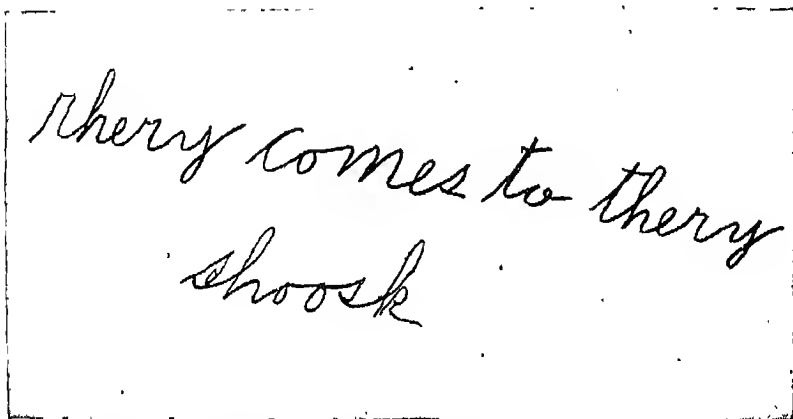 rhery comes to thery
shoosk